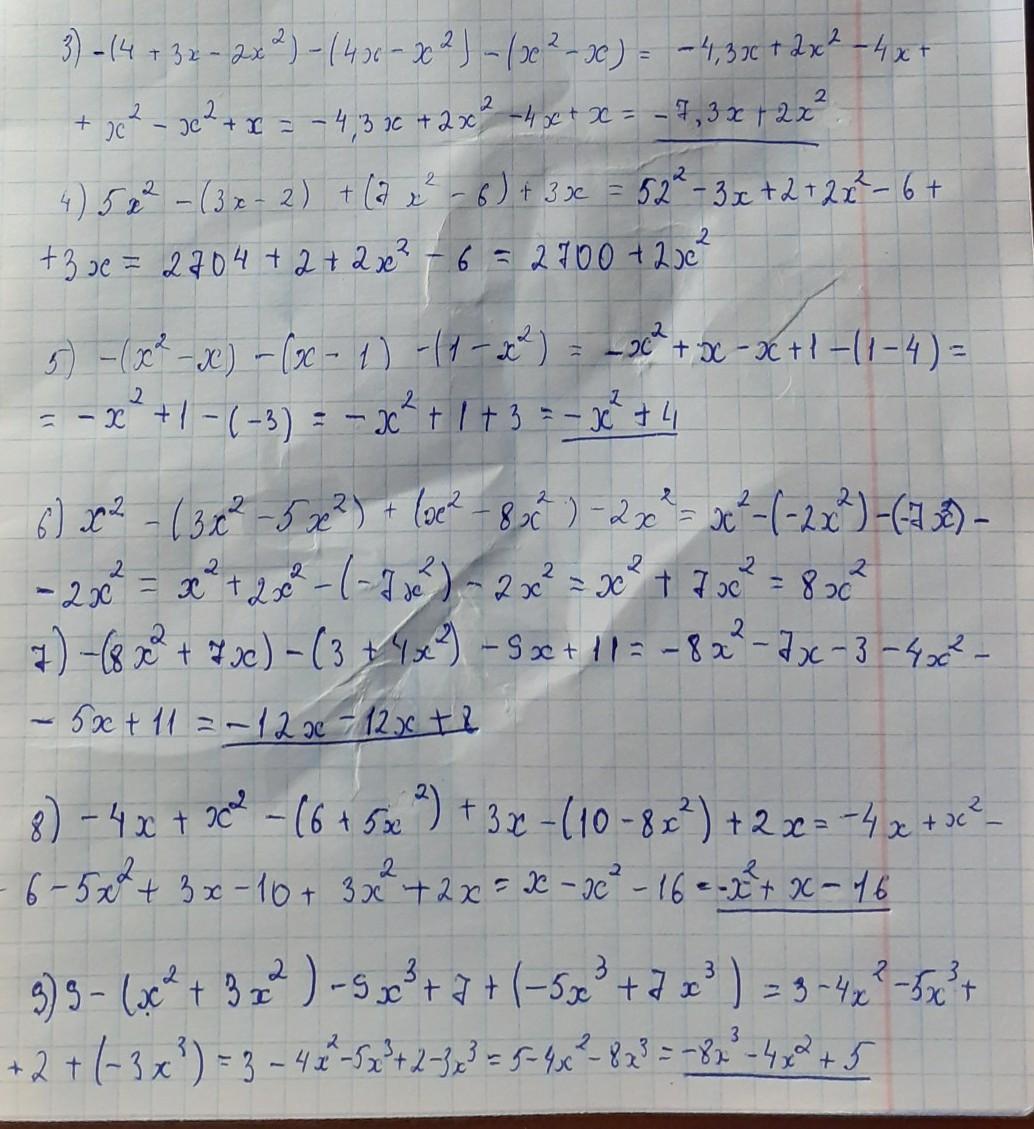 3) -(4 + 3x - 2x²) - (4x - x²) - (x² - x) = -4,3x + 2x² - 4x +
+ x² - x² + x = -4,3x + 2x² - 4x + x = -7,3x + 2x²
4) 5x² - (3x - 2) + (7x² - 6) + 3x = 52² - 3x + 2 + 2x² - 6 +
+ 3x = 2704 + 2 + 2x² - 6 = 2700 + 2x²
5) -(x² - x) - (x - 1) - (1 - x²) = -x² + x - x + 1 - (1 - 4) =
= -x² + 1 - (-3) = -x² + 1 + 3 = -x² + 4
6) x² - (3x² - 5x²) + (x² - 8x²) - 2x² = x² - (-2x²) - (-7x²) -
- 2x² = x² + 2x² - (-7x²) - 2x² = x² + 7x² = 8x²
7) -(8x² + 7x) - (3 + 4x²) - 5x + 11 = -8x² - 7x - 3 - 4x² -
- 5x + 11 = -12x - 12x + 8
8) -4x + x² - (6 + 5x²) + 3x - (10 - 8x²) + 2x = -4x + x² -
- 6 - 5x² + 3x - 10 + 3x² + 2x = x - x² - 16 = -x² + x - 16
9) 3 - (x² + 3x²) - 5x³ + 7 + (-5x³ + 7x³) = 3 - 4x² - 5x³ +
+ 2 + (-3x³) = 3 - 4x² - 5x³ + 2 - 3x³ = 5 - 4x² - 8x³ = -8x³ - 4x² + 5